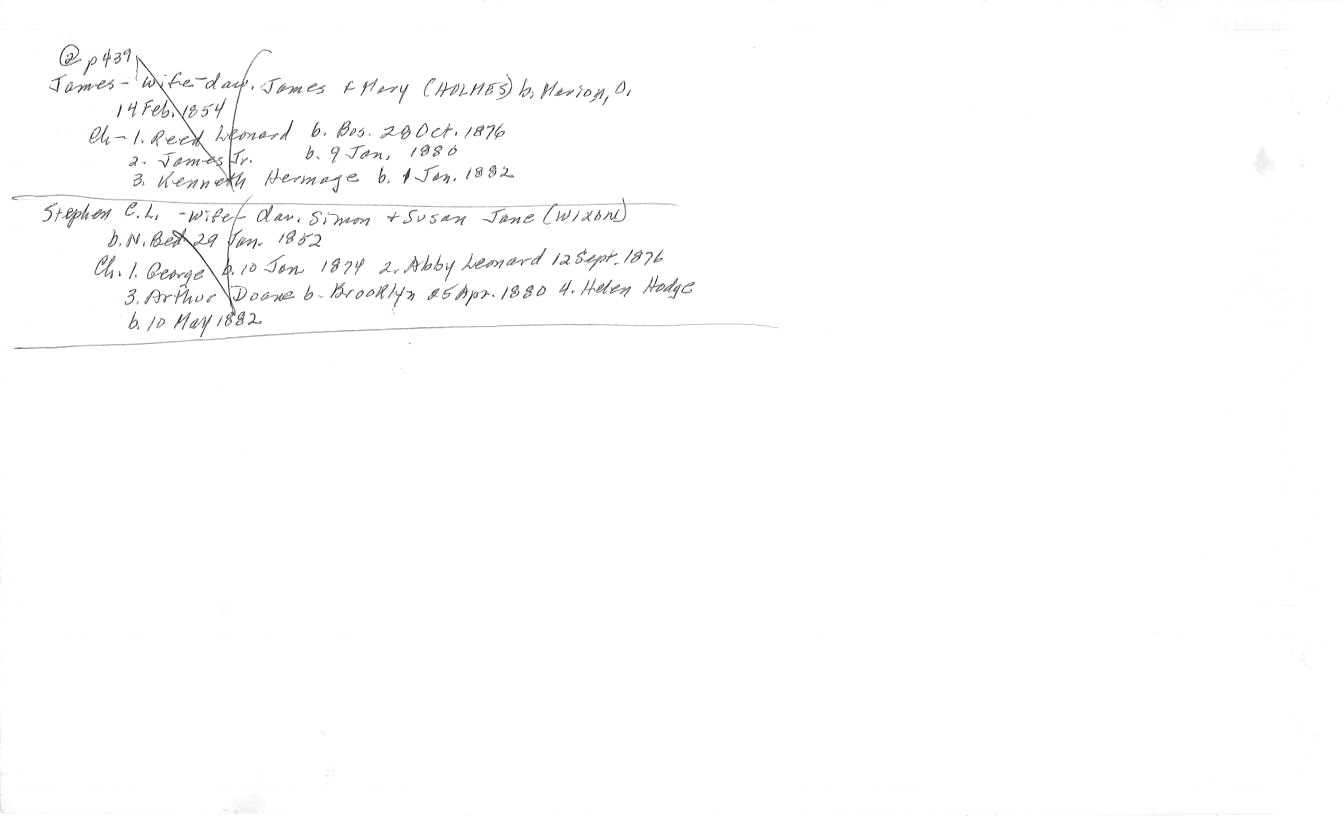 ② p439
James - wife - dau. James + Mary (HOLMES) b. Marion, O.
14 Feb. 1854
Ch - 1. Reed Leonard b. Bos. 28 Oct. 1876
2. James Jr. b. 9 Jan. 1880
3. Kenneth Hermage b. 1 Jan. 1882
Stephen C. L. - wife - dau. Simon + Susan Jane (WIXON)
b. N. Bed 29 Jan. 1852
Ch. 1. George b. 10 Jan 1874 2. Abby Leonard 12 Sept. 1876
3. Arthur Doane b. Brooklyn 25 Apr. 1880 4. Helen Hodge
b. 10 May 1882